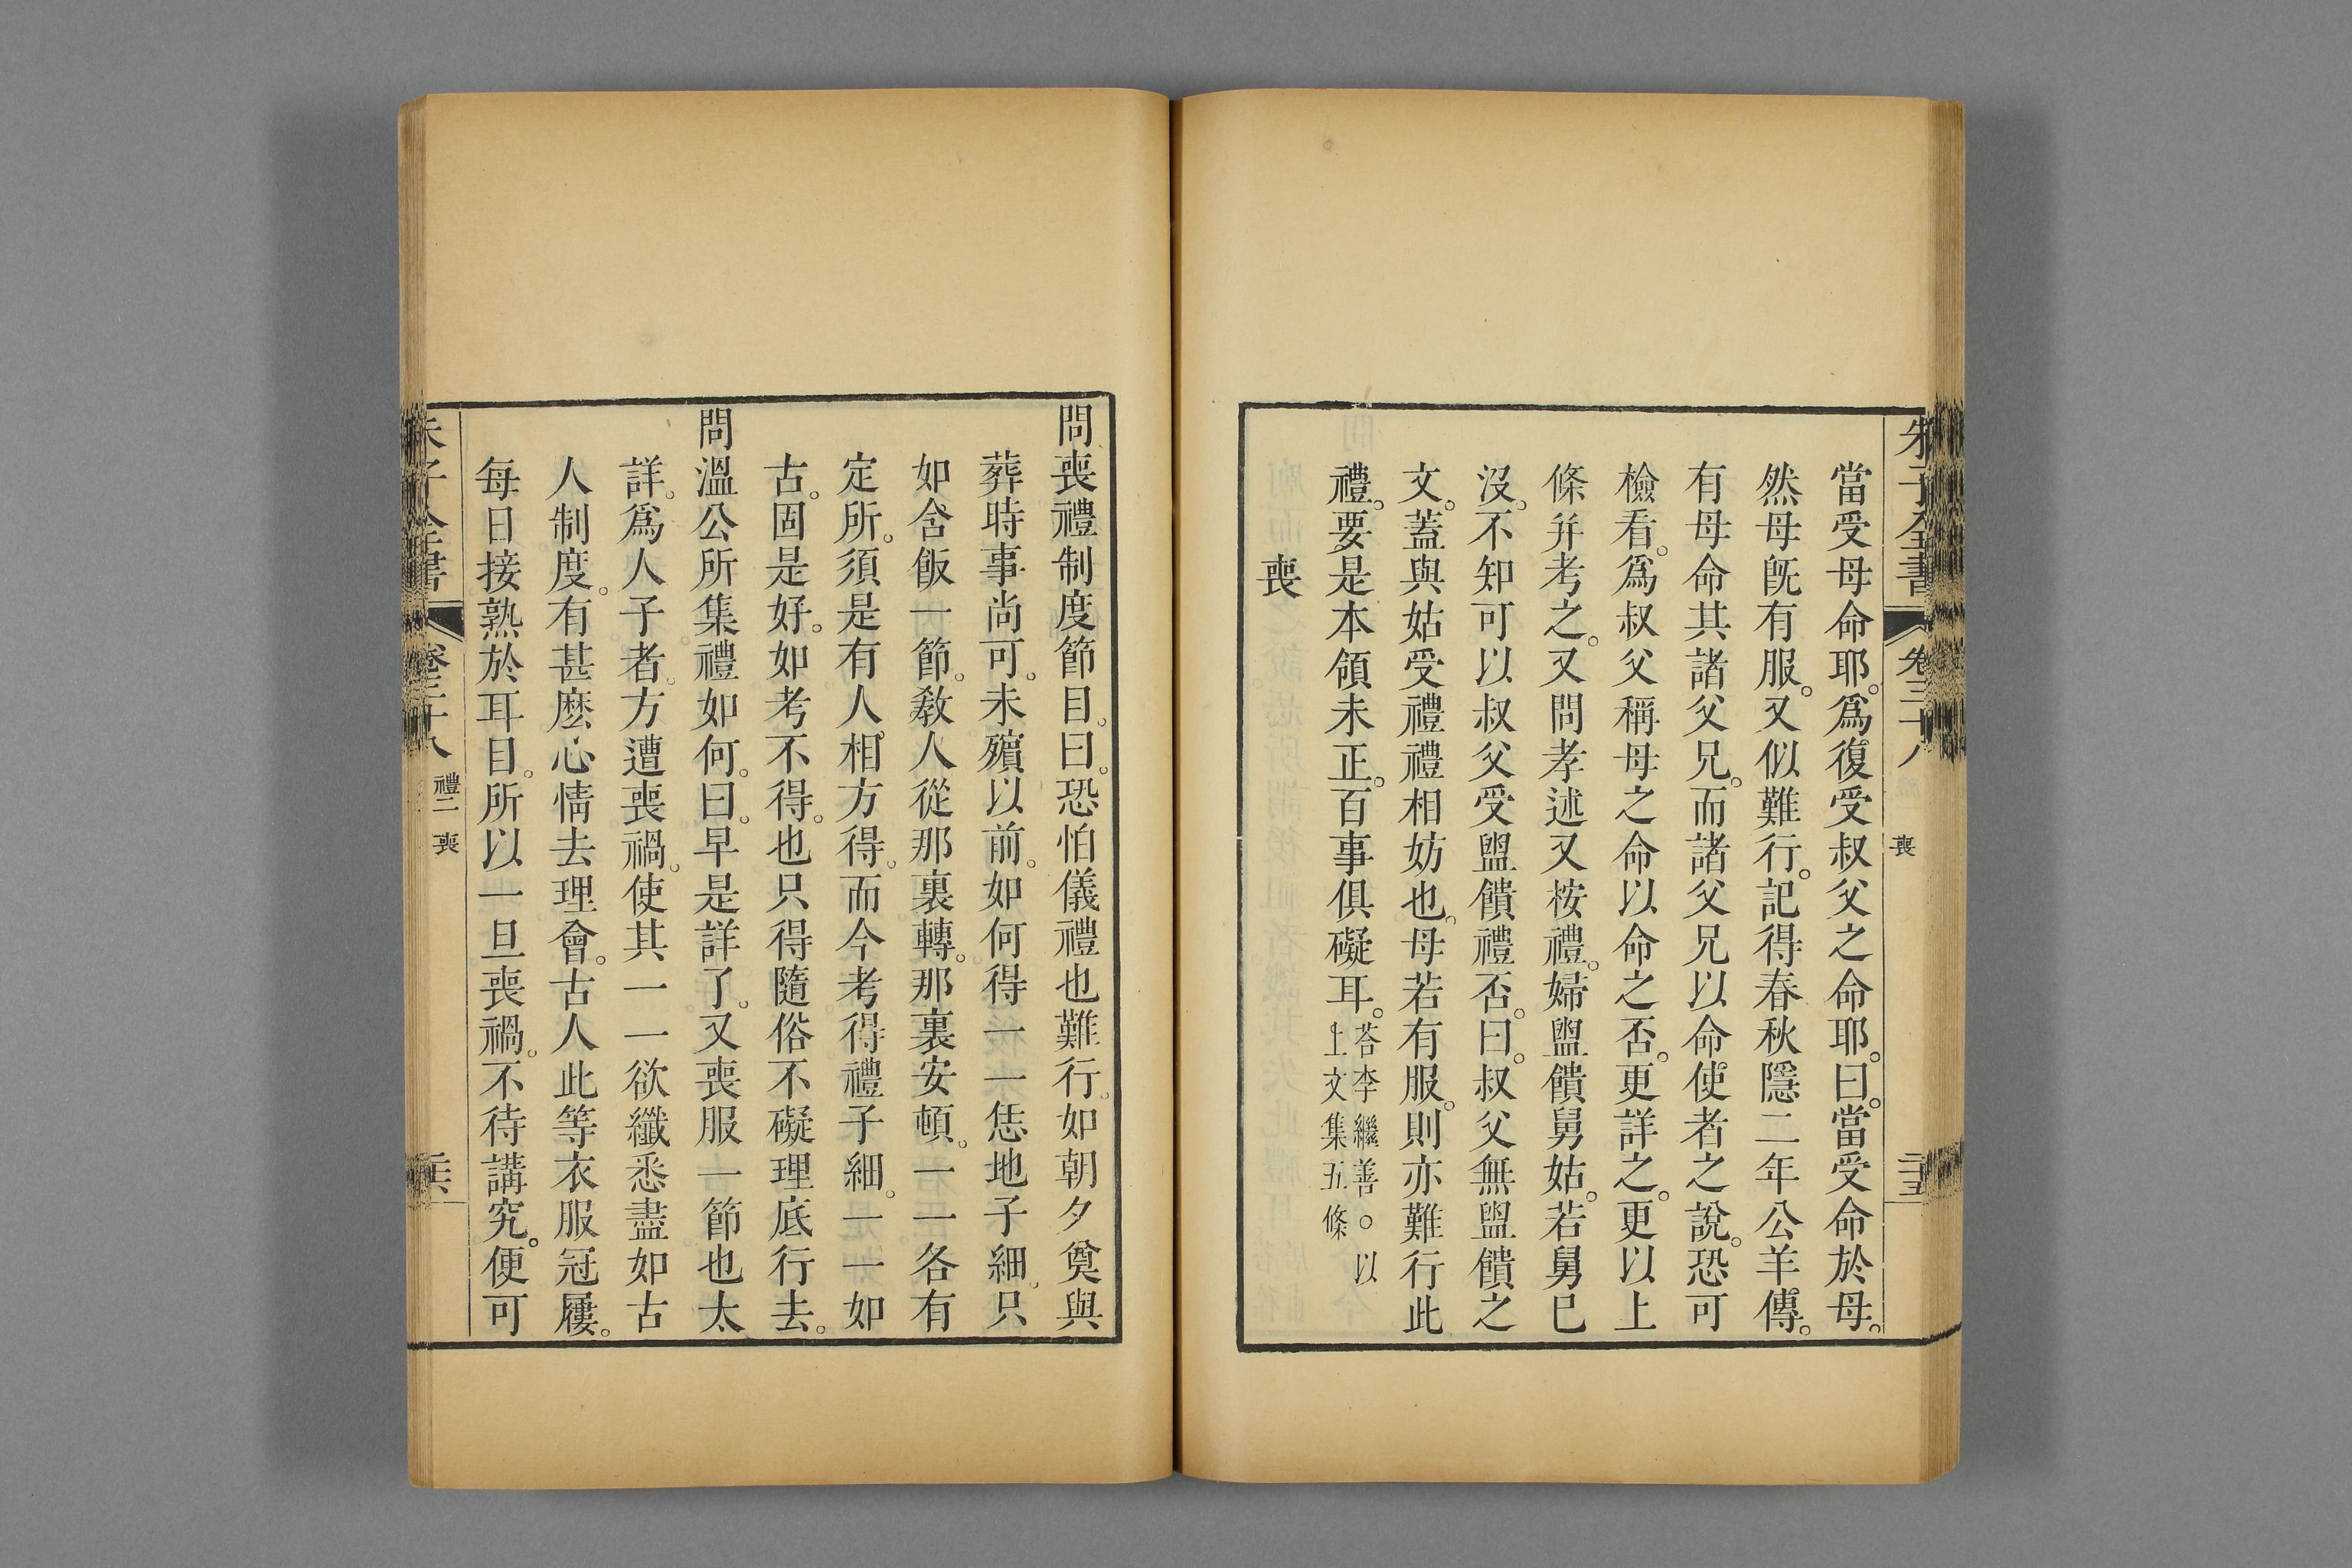 朱子全書 卷三十八 喪 二十五
當受母命耶。爲復受叔父之命耶。曰。當受命於母。
然母既有服。又似難行。記得春秋隱二年公羊傳。
有母命其諸父兄。而諸父兄以命使者之說。恐可
檢看。爲叔父稱母之命以命之否。更詳之。更以上
條幷考之。又問孝述又桉禮。婦盥饋舅姑。若舅巳
沒。不知可以叔父受盥饋禮否。曰。叔父無盥饋之
文。蓋與姑受禮禮相妨也。母若有服。則亦難行此
禮。要是本領未正。百事俱礙耳。荅李繼善。○以
上文集五條
喪
問喪禮制度節目。曰。恐怕儀禮也難行。如朝夕奠與
葬時事尚可。未殯以前。如何得一一恁地子細。只
如含飯一節。敎人從那裏轉。那裏安頓。一一各有
定所。須是有人相方得。而今考得禮子細。一一如
古。固是好。如考不得。也只得隨俗不礙理底行去。
問溫公所集禮如何。曰。早是詳了。又喪服一節也太
詳。爲人子者。方遭喪禍。使其一一欲纖悉盡如古
人制度。有甚麽心情去理會。古人此等衣服冠屨。
每日接熟於耳目。所以一旦喪禍。不待講究。便可
朱子全書 卷三十八 禮二 喪 二十六